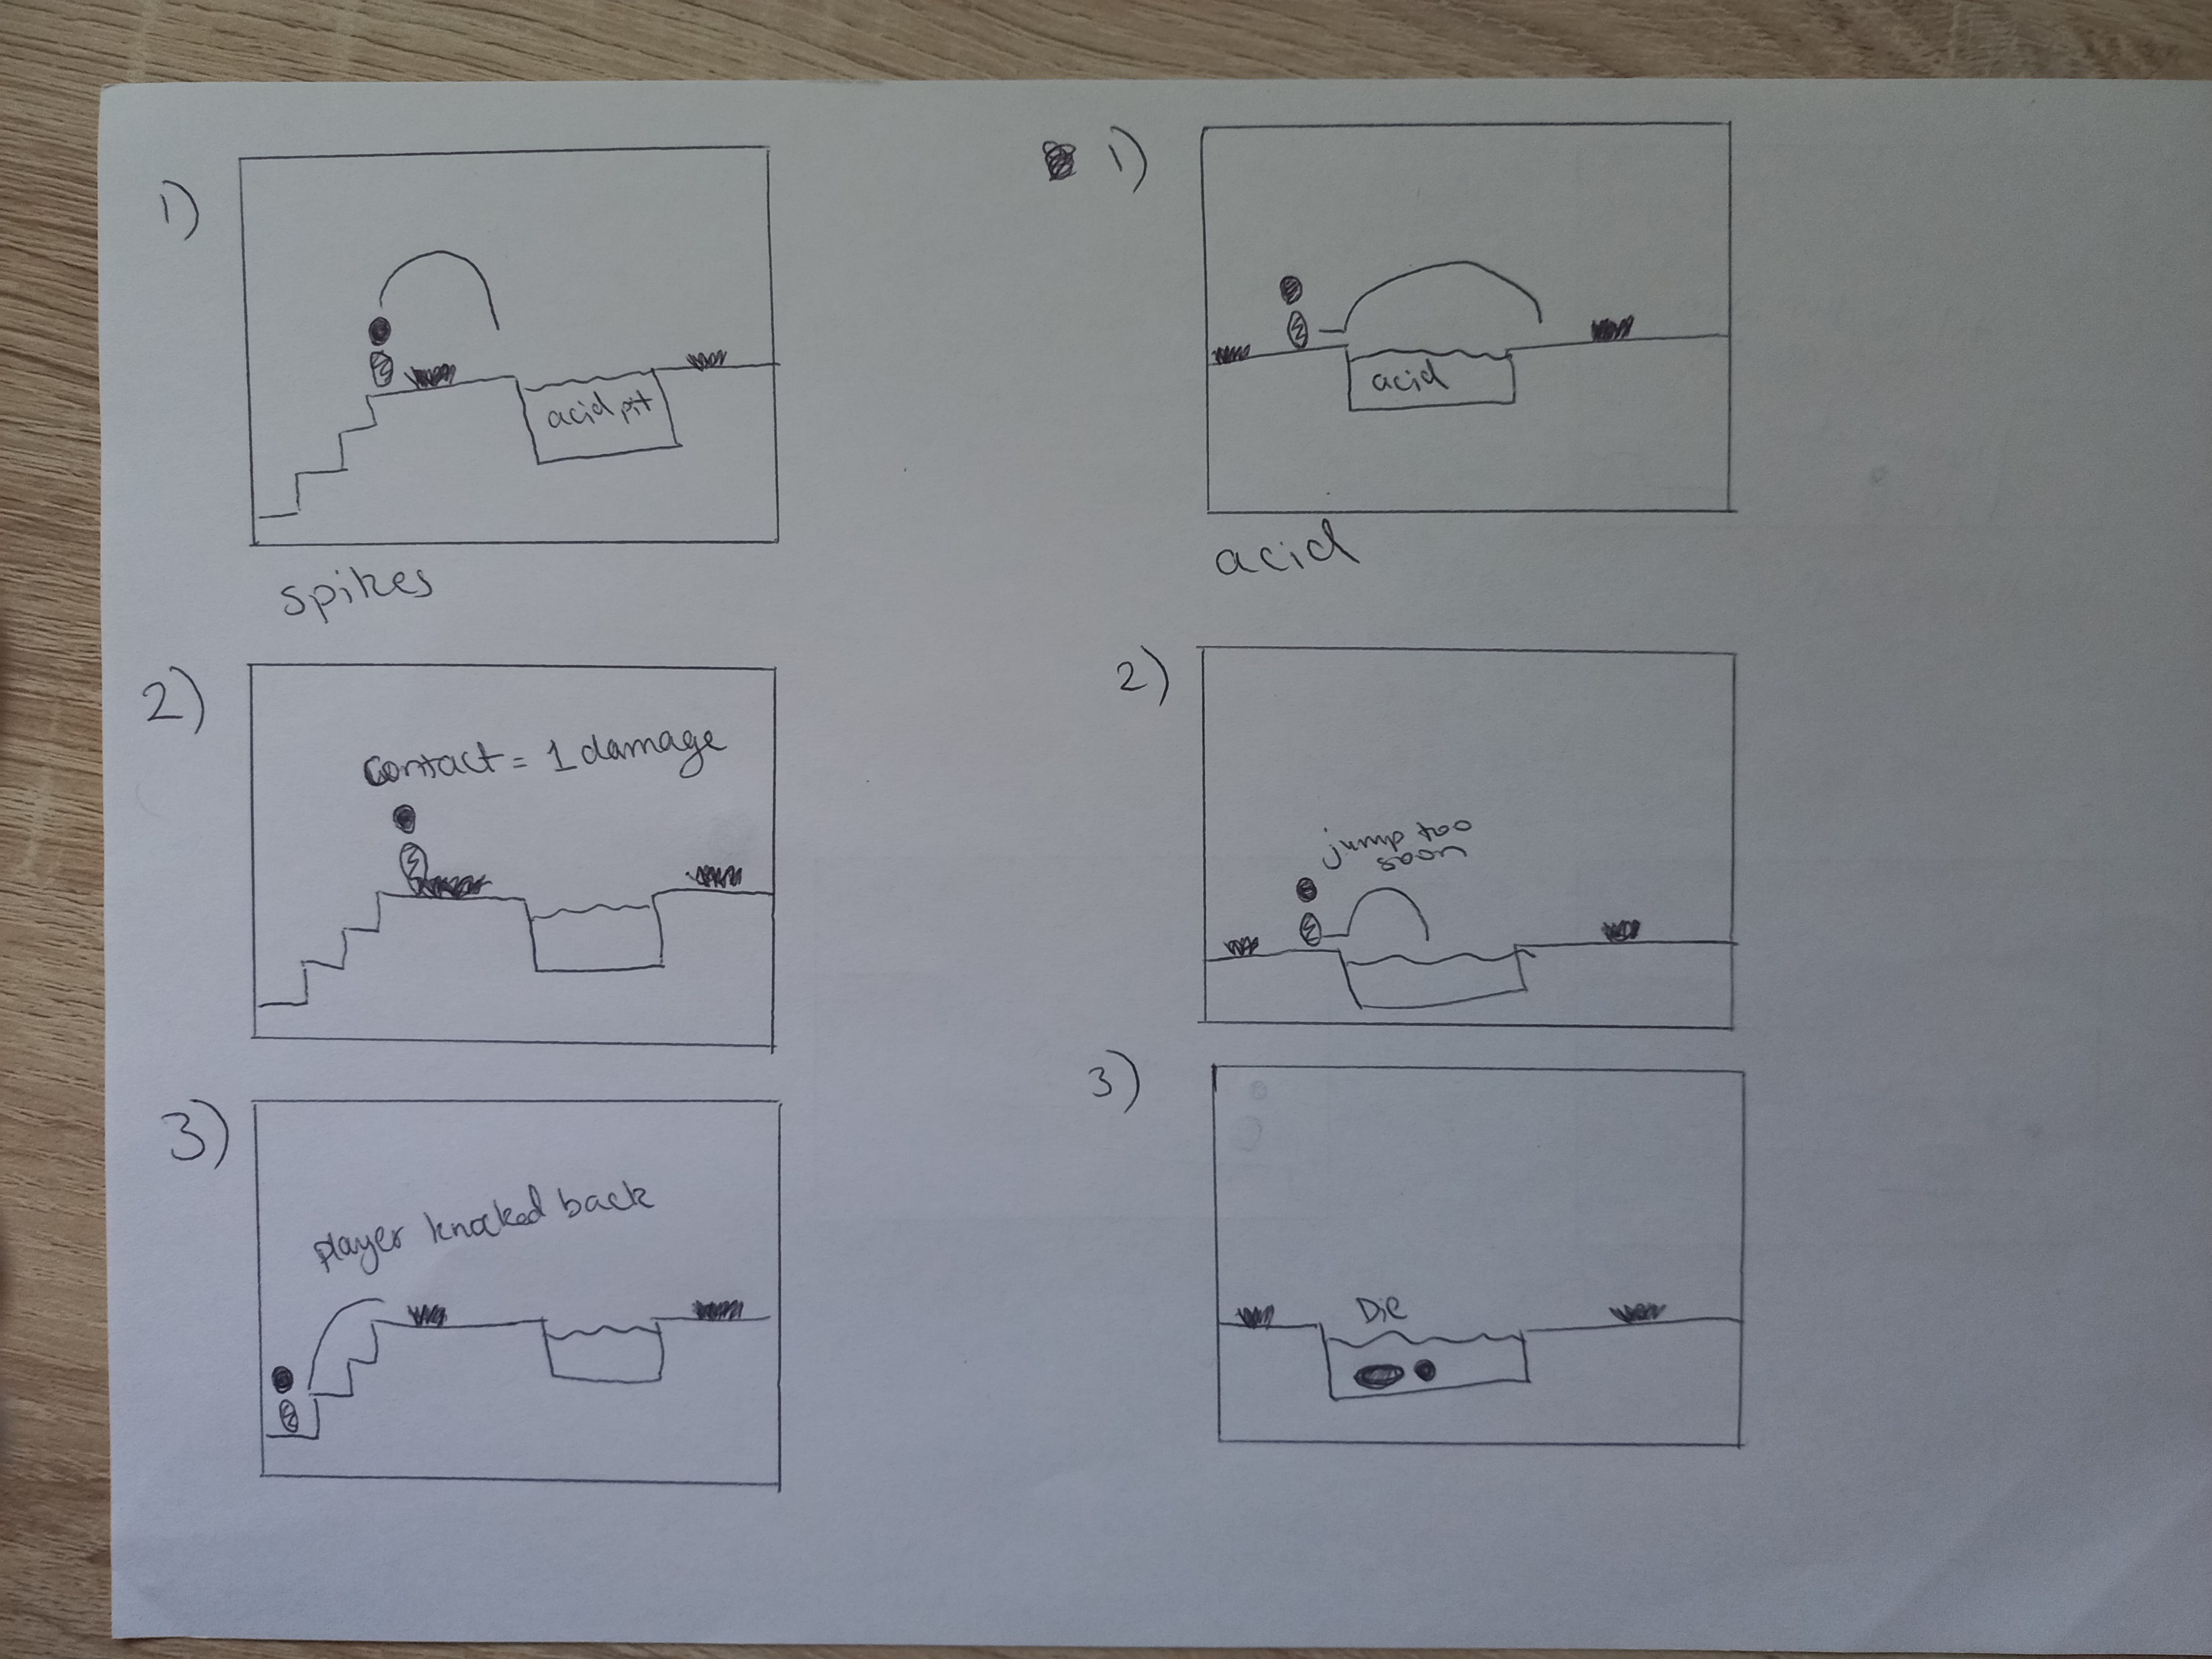 1)
acid pit
spikes
2)
contact = 1 damage
3)
player knocked back
1)
acid
acid
2)
jump too
soon
3)
Die